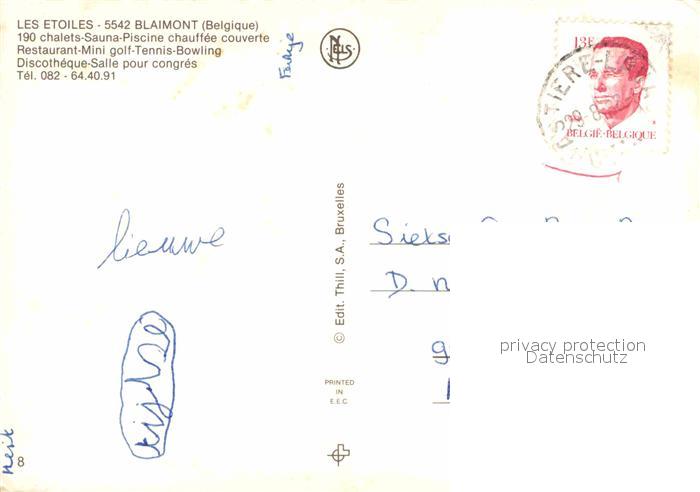 LES ETOILES - 5542 BLAIMONT (Belgique)
190 chalets-Sauna-Piscine chauffée couverte
Restaurant-Mini golf-Tennis-Bowling
Discothéque-Salle pour congrés
Tél. 082 - 64.40.91
NELS
13F
BELGIË-BELGIQUE
lieuwe
© Edit. Thill, S.A., Bruxelles
Sieks
D. n
g
privacy protection
Datenschutz
PRINTED
IN
E.E.C.
tijdse
8